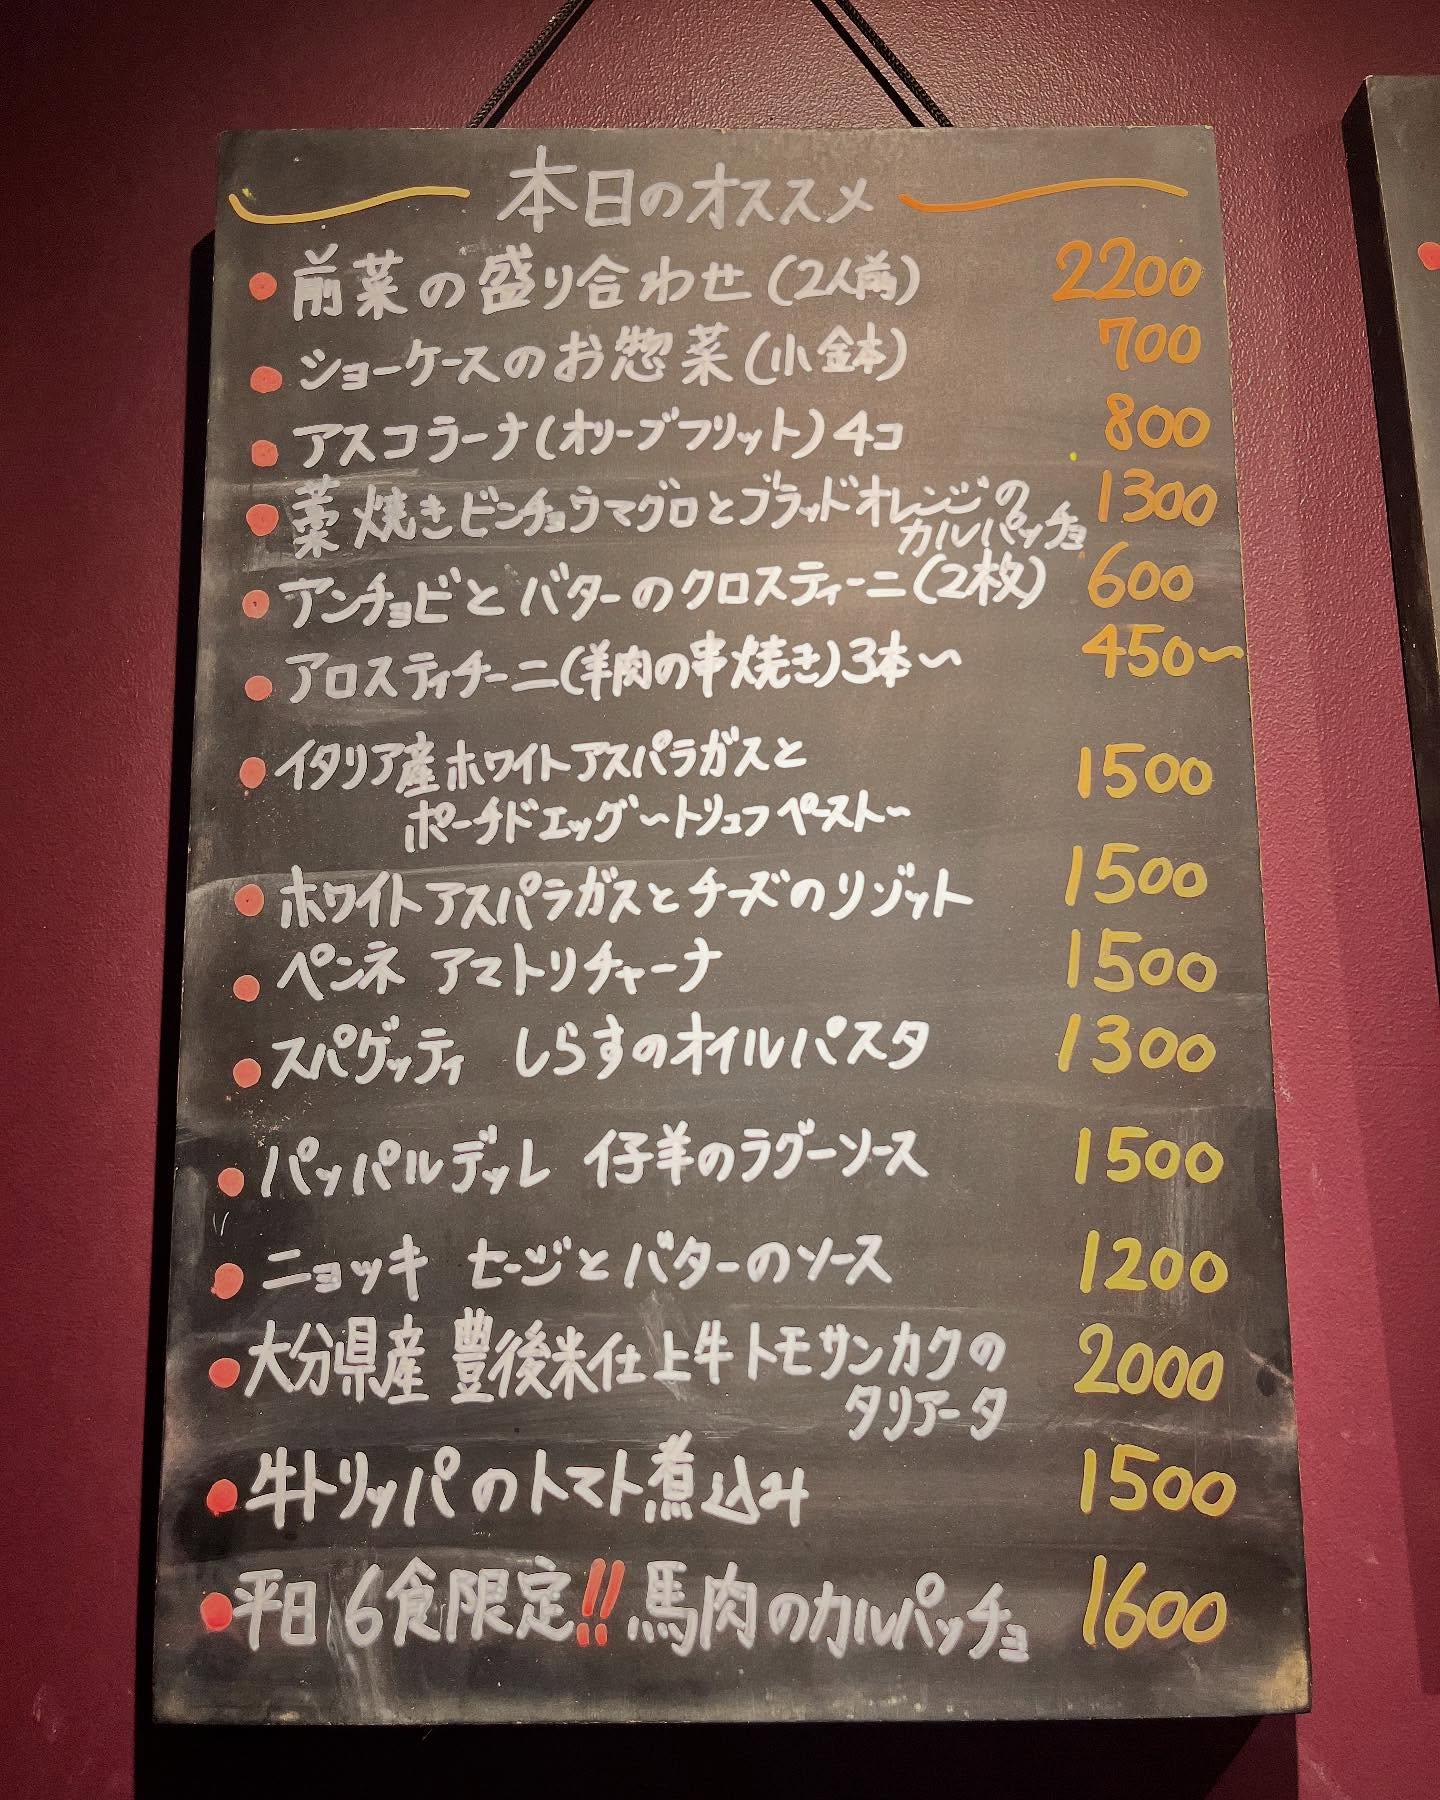 本日のオススメ
前菜の盛り合わせ(2人前) 2200
ショーケースのお惣菜(小鉢) 700
アスコラーナ(オリーブフリット)4コ 800
藁焼きビンチョウマグロとブラッドオレンジの
カルパッチョ 1300
アンチョビとバターのクロスティーニ(2枚) 600
アロスティチーニ(羊肉の串焼き)3本〜 450〜
イタリア産ホワイトアスパラガスと
ポーチドエッグ〜トリュフペースト〜 1500
ホワイトアスパラガスとチーズのリゾット 1500
ペンネ アマトリチャーナ 1500
スパゲッティ しらすのオイルパスタ 1300
パッパルデッレ 仔羊のラグーソース 1500
ニョッキ セージとバターのソース 1200
大分県産 豊後米仕上牛トモサンカクの
タリアータ 2000
牛トリッパのトマト煮込み 1500
平日 6食限定!! 馬肉のカルパッチョ 1600